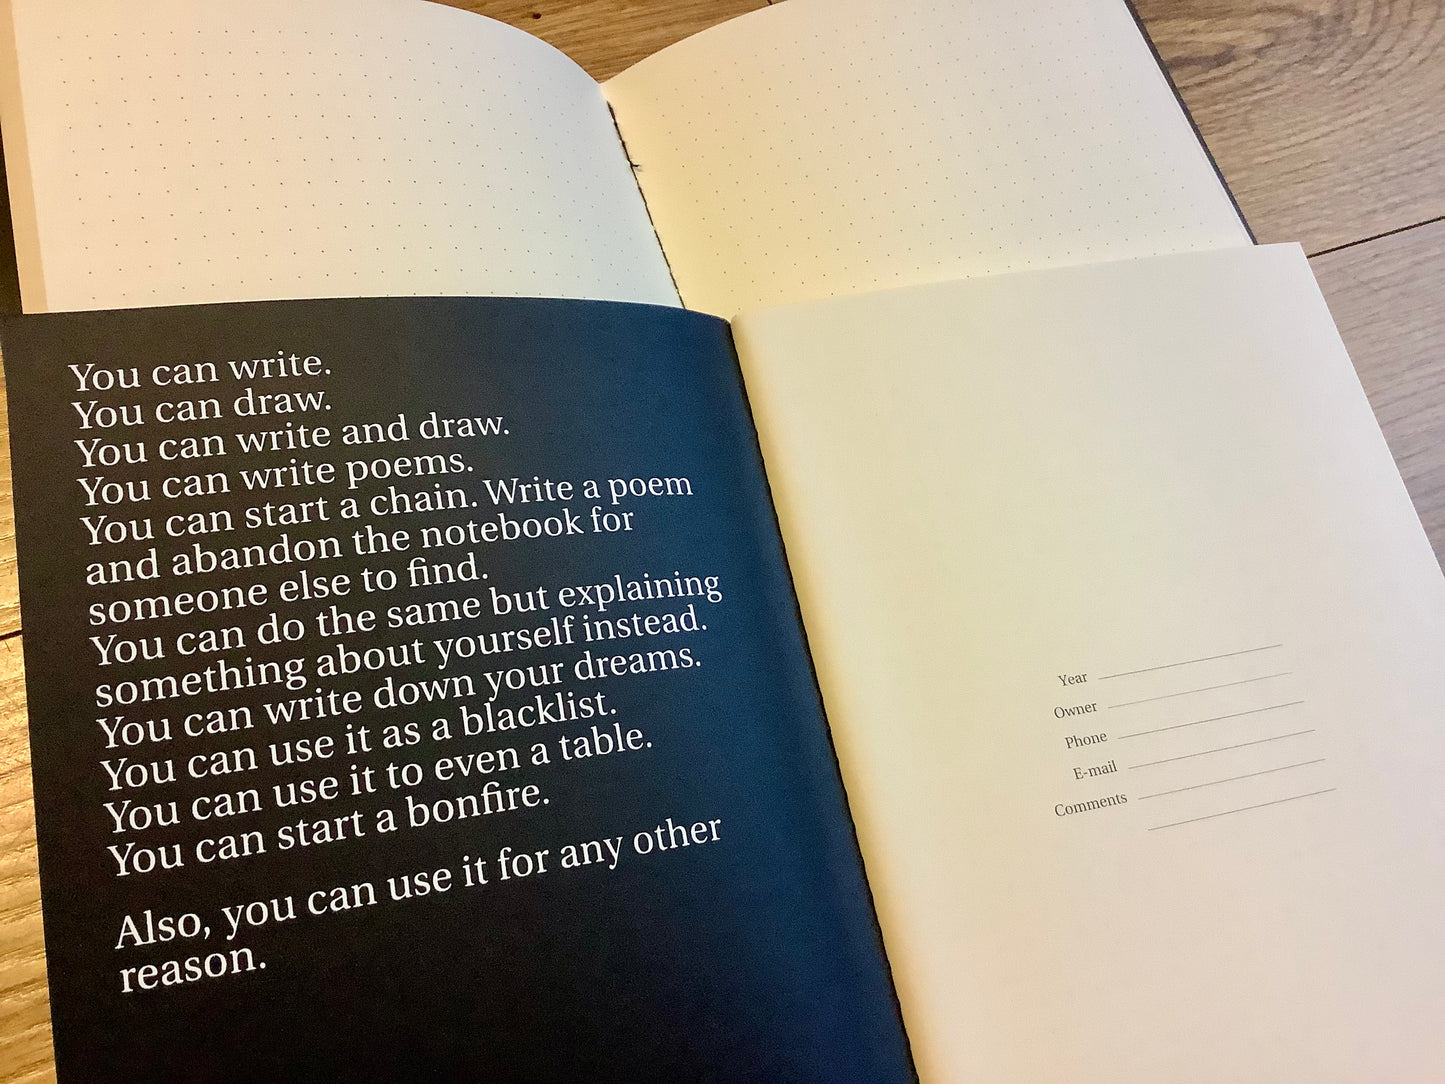 You can write.
You can draw.
You can write and draw.
You can write poems.
You can start a chain. Write a poem
and abandon the notebook for
someone else to find.
You can do the same but explaining
something about yourself instead.
You can write down your dreams.
You can use it as a blacklist.
You can use it to even a table.
You can start a bonfire.
Also, you can use it for any other
reason.
Year
Owner
Phone
E-mail
Comments